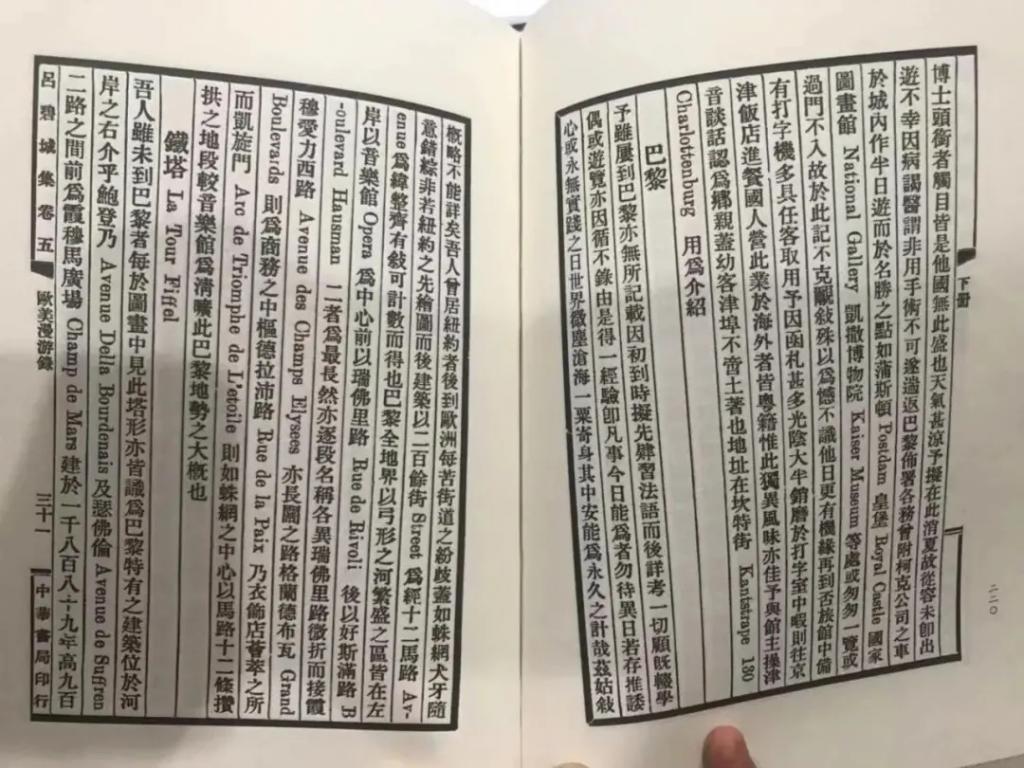 下册
博士頭銜者觸目皆是他國無此盛也天氣甚涼予擬在此消夏故從容未卽出
遊不幸因病謁醫謂非用手術不可遂遄返巴黎佈署各務曾附柯克公司之車
於城內作半日遊而於名勝之點如蒲斯頓 Postdam 皇堡 Royal Castle 國家
圖畫館 National Gallery 凱撒博物院 Kaiser Museum 等處或匆匆一覽或
過門不入故於此記不克覼敍殊以爲憾不識他日更有機緣再到否旅館中備
有打字機多具任客取用予因函札甚多光陰大半銷磨於打字室中暇則往京
津飯店進餐國人營此業於海外者皆粵籍惟此獨異風味亦佳予與館主操津
音談話認爲鄕親蓋幼客津埠不啻土著也地址在坎特街 Kantstrape 130
Charlottenburg 用爲介紹
巴黎
予雖屢到巴黎亦無所記載因初到時擬先肄習法語而後詳考一切顧旣輟學
偶或遊覽亦因循不錄由是得一經驗卽凡事今日能爲者勿待異日若存推諉
心或永無實踐之日世界微塵滄海一粟寄身其中安能爲永久之計哉茲姑敍
二二〇
概略不能詳矣吾人曾居紐約者後到歐洲每苦街道之紛歧蓋如蛛網犬牙隨
意錯綜非若紐約之先繪圖而後建築以二百餘街 Street 爲經十二馬路 Av-
enue 爲緯整齊有敍可計數而得也巴黎全地界以弓形之河繁盛之區皆在左
岸以音樂館 Opera 爲中心前以瑞佛里路 Rue de Rivoli 後以好斯滿路 B
-oulevard Hausman 二者爲最長然亦逐段名稱各異瑞佛里路微折而接霞
穆愛力西路 Avenue des Champs Elysees 亦長闊之路格蘭德布瓦 Grand
Boulevards 則爲商務之中樞德拉沛路 Rue de la Paix 乃衣飾店薈萃之所
而凱旋門 Arc de Triomphe de L'etoile 則如蛛網之中心以馬路十二條攢
拱之地段較音樂館爲淸曠此巴黎地勢之大概也
鐵塔 La Tour Fiffel
吾人雖未到巴黎者每於圖畫中見此塔形亦皆識爲巴黎特有之建築位於河
岸之右介乎鮑登乃 Avenue Della Bourdenais 及瑟佛倫 Avenue de Suffren
二路之間前爲霞穆馬廣場 Champ de Mars 建於一千八百八十九年高九百
呂碧城集卷五
歐美漫游錄
三十一
中華書局印行